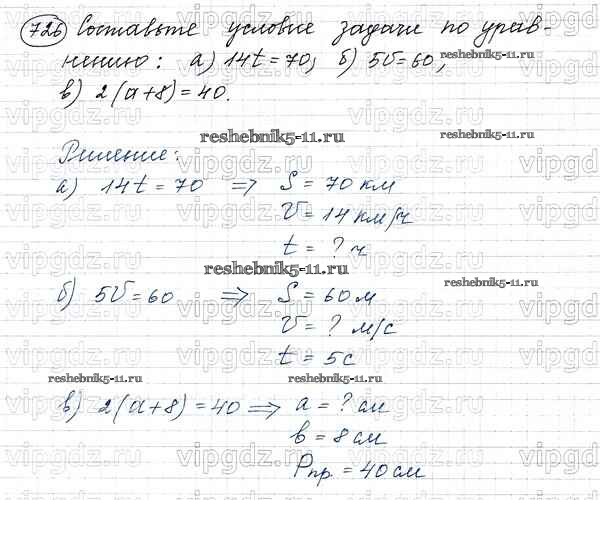 726 Составьте условие задачи по урав-
нению: а) 14t = 70; б) 5v = 60;
reshebnik5-11.ru
в) 2(a+8) = 40.
reshebnik5-11.ru
reshebnik5-11.ru
Решение:
а) 14t = 70 => S = 70 км
v = 14 км/ч
t = ? ч
reshebnik5-11.ru
reshebnik5-11.ru
б) 5v = 60 => S = 60 м
v = ? м/с
t = 5 с
reshebnik5-11.ru
reshebnik5-11.ru
в) 2(a+8) = 40 => a = ? см
в = 8 см
Pпр = 40 см
vipgdz.ru